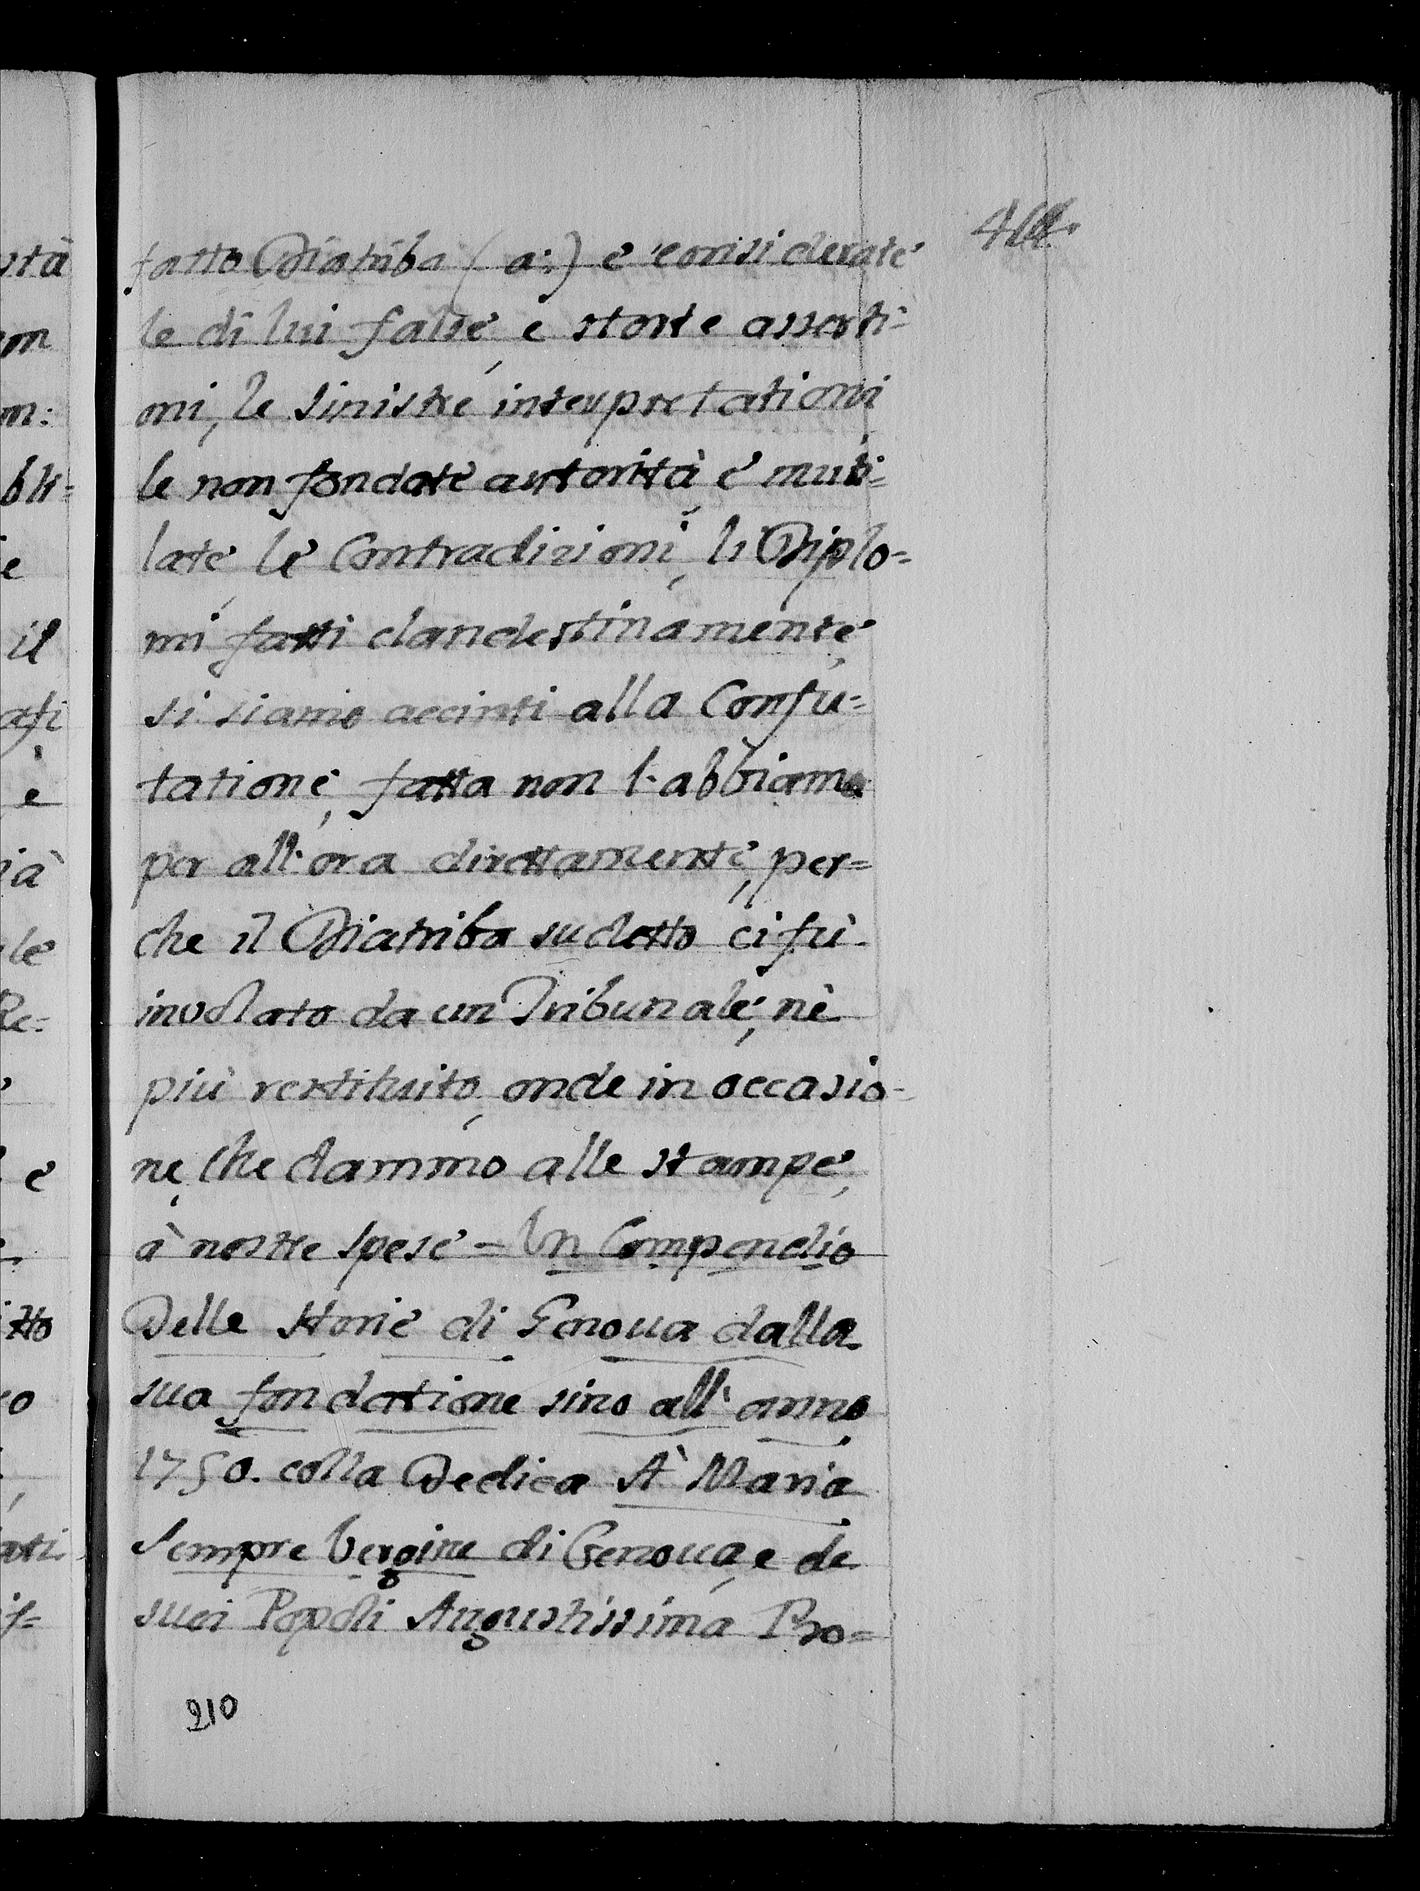 fatto Diatriba (a:) e considerate
le di lui false, e storte asserti-
oni, le sinistre interpretationi,
le non fondate autorità, e muti-
late, le Contradizioni, li Diplo=
mi fatti clandestinamente,
si siamo accinti alla Confu=
tatione, fatta non l'abbiamo
per all'ora direttamente, per=
che il Diatriba sudetto ci fù
involato da un Tribunale, nè
più restituito, onde in occasio-
ne, che dammo alle stampe,
à nostre spese = Un Compendio
Delle storie di Genoua dalla
sua fondatione sino all'anno
1750. colla Dedica A' Maria
sempre Vergine di Genoua, e de
suoi Popoli Augustissima Pro=
210
stà
on
on:
bli=
e
il
afi
è
ià
le
Re:
e
tto
o
ati
if=